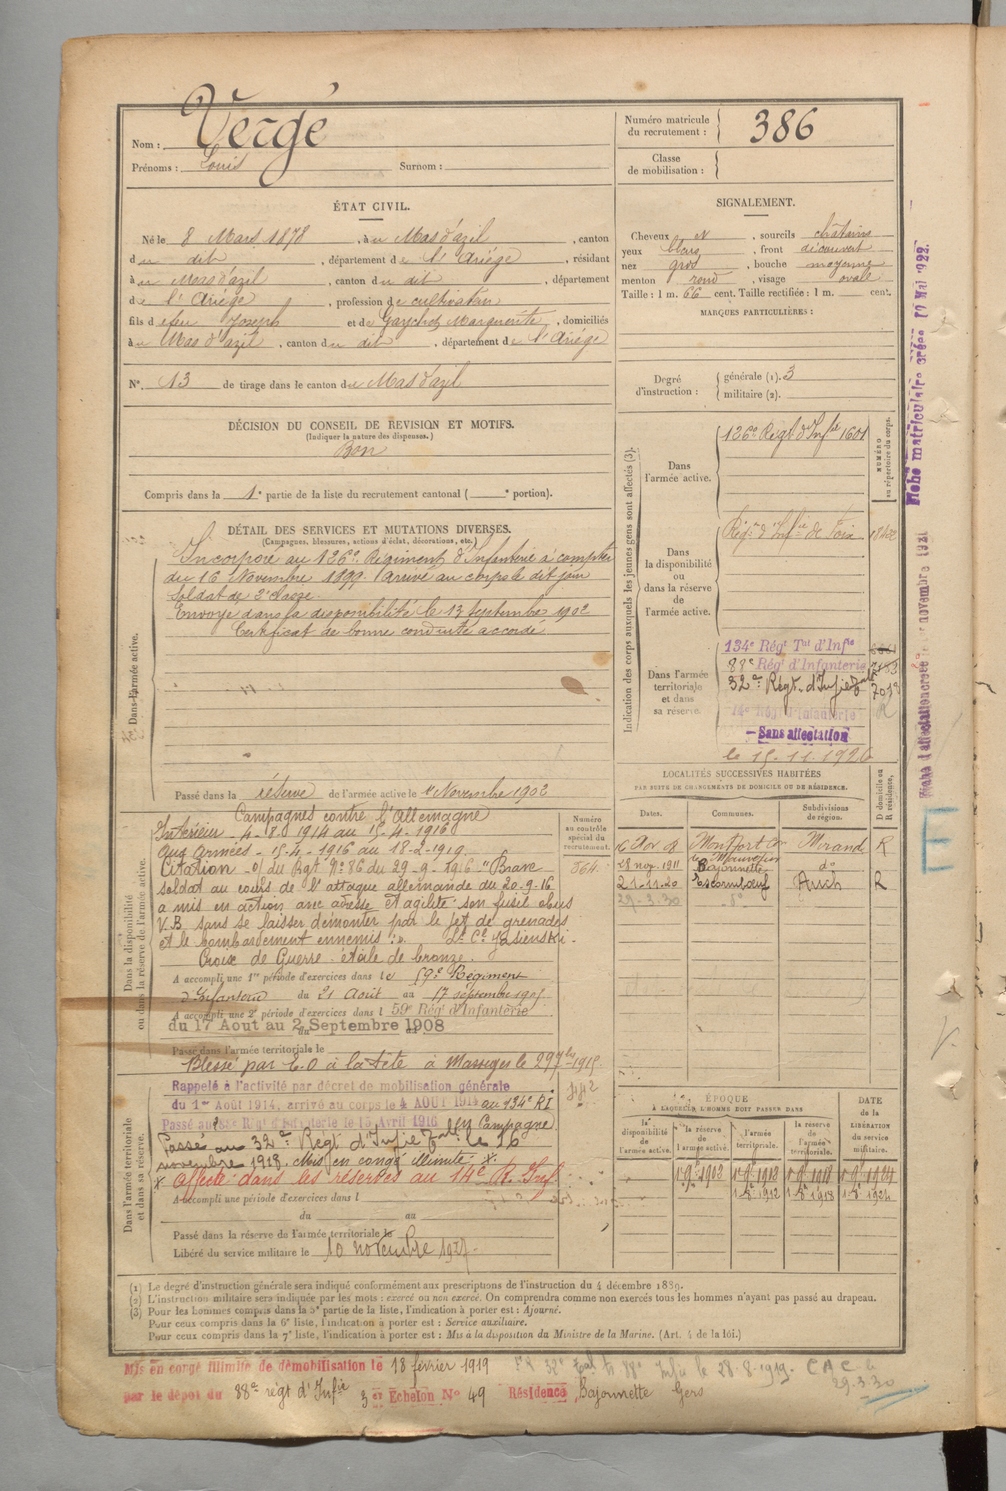 Nom : Vergé
Prénoms : Louis Surnom :
Numéro matricule du recrutement : 386
Classe de mobilisation :
ÉTAT CIVIL.
Né le 8 Mars 1878, à u Mas d'azil, canton
d u dit, département d e l'Ariège, résidant
à u Mas d'azil, canton d u dit, département
d e l'Ariège, profession d e cultivateur
fils d e feu Joseph et d e Marguerite, domiciliés
à u Mas d'azil, canton d u dit, département d e l'Ariège
N° 13 de tirage dans le canton d u Mas d'azil
SIGNALEMENT.
Cheveux et, sourcils châtains
yeux bleus, front découvert
nez gros, bouche moyenne
menton rond, visage ovale
Taille : 1 m. 66 cent. Taille rectifiée : 1 m. cent.
MARQUES PARTICULIÈRES :
Degré d'instruction : générale (1). 3
militaire (2).
DÉCISION DU CONSEIL DE REVISION ET MOTIFS.
(Indiquer la nature des dispenses.)
Bon
Compris dans la 1e partie de la liste du recrutement cantonal ( e portion).
DÉTAIL DES SERVICES ET MUTATIONS DIVERSES.
(Campagnes, blessures, actions d'éclat, décorations, etc.)
Dans l'armée active.
Incorporé au 126e Régiment d'Infanterie à compter
du 16 Novembre 1899. Arrivé au corps le dit jour
Soldat de 2e classe.
Envoyé dans la disponibilité le 13 Septembre 1902
Certificat de bonne conduite accordé
Passé dans la réserve de l'armée active le 1er Novembre 1902
Indication des corps auxquels les jeunes gens sont affectés (3).
NUMÉRO au répertoire du corps.
Dans l'armée active.
126e Régt d'Infie 1601
Dans la disponibilité ou dans la réserve de l'armée active.
Régt d'Infie de Foix
Dans l'armée territoriale et dans sa réserve.
134e Régt Tal d'Infie
88e Régt d'Infanterie
32e Régt d'Infie Tale
14e Régt d'Infanterie
Sans affectation
le 15.11.1926
Dans la disponibilité ou dans la réserve de l'armée active.
Campagnes contre l'Allemagne
Intérieur - 4-8-1914 au 15-4-1916
Aux Armées - 15-4-1916 au 18-2-1919.
Citation - o/ du Rgt N° 86 du 29-9-1916 "Brave
soldat au cours de l'attaque allemande du 20-9-16
a mis en action avec adresse et agilité son fusil obus
V.B sans se laisser démonter par le jet de grenades
et le bombardement ennemis".
Croix de Guerre étoile de bronze.
Numéro au contrôle spécial du recrutement.
564
A accompli une 1re période d'exercices dans le 59e Régiment
d'Infanterie du 21 Août au 17 septembre 1905
A accompli une 2e période d'exercices dans l 59e Régt d'Infanterie
du 17 Aout au 2 Septembre 1908
Passé dans l'armée territoriale le
Blessé par E.O à la tête à Massiges le 29 7bre 1915.
Dans l'armée territoriale et dans sa réserve.
Rappelé à l'activité par décret de mobilisation générale
du 1er Août 1914, arrivé au corps le 4 AOUT 1914 au 134e RI
Passé au 88e Régt d'Infanterie le 15 Avril 1916 en Campagne
Passé au 32e Régt d'Infie Tale le 16
novembre 1918. Mis en congé illimité x.
x Affecté dans les réserves au 14e R. Inf.
A accompli une période d'exercices dans l
du au
Passé dans la réserve de l'armée territoriale le
Libéré du service militaire le 10 novembre 1927.
LOCALITÉS SUCCESSIVES HABITÉES
PAR SUITE DE CHANGEMENTS DE DOMICILE OU DE RÉSIDENCE.
Dates. Communes. Subdivisions de région. D domicile ou R résidence.
Montfort Mirand R
28 nov. 1911 Bajonnette do
21-11-20 Escornebœuf Auch R
29-3-30 do
ÉPOQUE
À LAQUELLE L'HOMME DOIT PASSER DANS
la disponibilité de l'armée active.
la réserve de l'armée active.
l'armée territoriale.
la réserve de l'armée territoriale.
DATE de la LIBÉRATION du service militaire.
(1) Le degré d'instruction générale sera indiqué conformément aux prescriptions de l'instruction du 4 décembre 1889.
(2) L'instruction militaire sera indiquée par les mots : exercé ou non exercé. On comprendra comme non exercés tous les hommes n'ayant pas passé au drapeau.
(3) Pour les hommes compris dans la 5e partie de la liste, l'indication à porter est : Ajourné.
Pour ceux compris dans la 6e liste, l'indication à porter est : Service auxiliaire.
Pour ceux compris dans la 7e liste, l'indication à porter est : Mis à la disposition du Ministre de la Marine. (Art. 4 de la loi.)
Mis en congé illimité de démobilisation le 18 février 1919
par le dépôt du 88e régt d'Infie 3e Echelon N° 49 Résidence Bajonnette Gers
C A C le
29.3.30
Fiche matriculaire créée 10 Mai 1922.
E